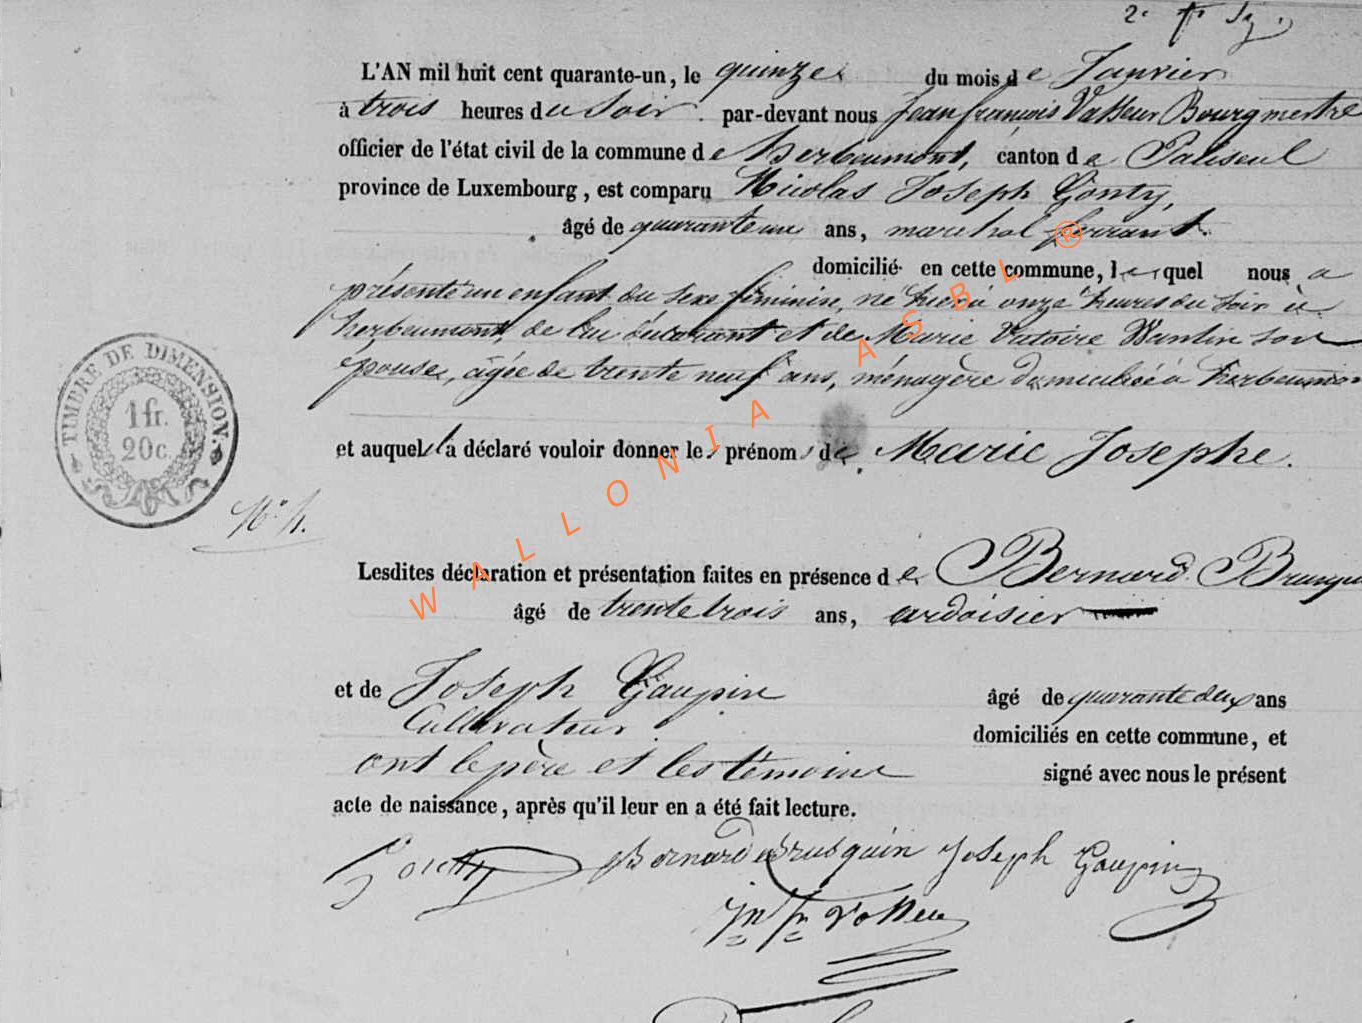 L'AN mil huit cent quarante-un, le quinze du mois de Janvier
à trois heures du soir par-devant nous Jean françois Vasseur Bourgmestre
officier de l'état civil de la commune de herbeumont, canton de Paliseul
province de Luxembourg, est comparu Nicolas Joseph Gonty,
âgé de quarante un ans, marchal ferrant
domicilié en cette commune, lequel nous a
présenté un enfant du sexe féminin, né hier à onze heures du soir à
herbeumont, de lui déclarant et de Marie Victoire Wantin son
épouse, agée de trente neuf ans, ménagère domiciliée à herbeumon
et auquel l a déclaré vouloir donner les prénoms de Marie Josephe.
TIMBRE DE DIMENSION.
1 fr.
20 c.
Lesdites déclaration et présentation faites en présence de Bernard Brusqu
âgé de trente trois ans, ardoisier
et de Joseph Gaupin âgé de quarante deux ans
Cultivateur domiciliés en cette commune, et
ont le père et les témoins signé avec nous le présent
acte de naissance, après qu'il leur en a été fait lecture.
Bernard Brusquin Joseph Gaupin
WALLONIA ASBL ®